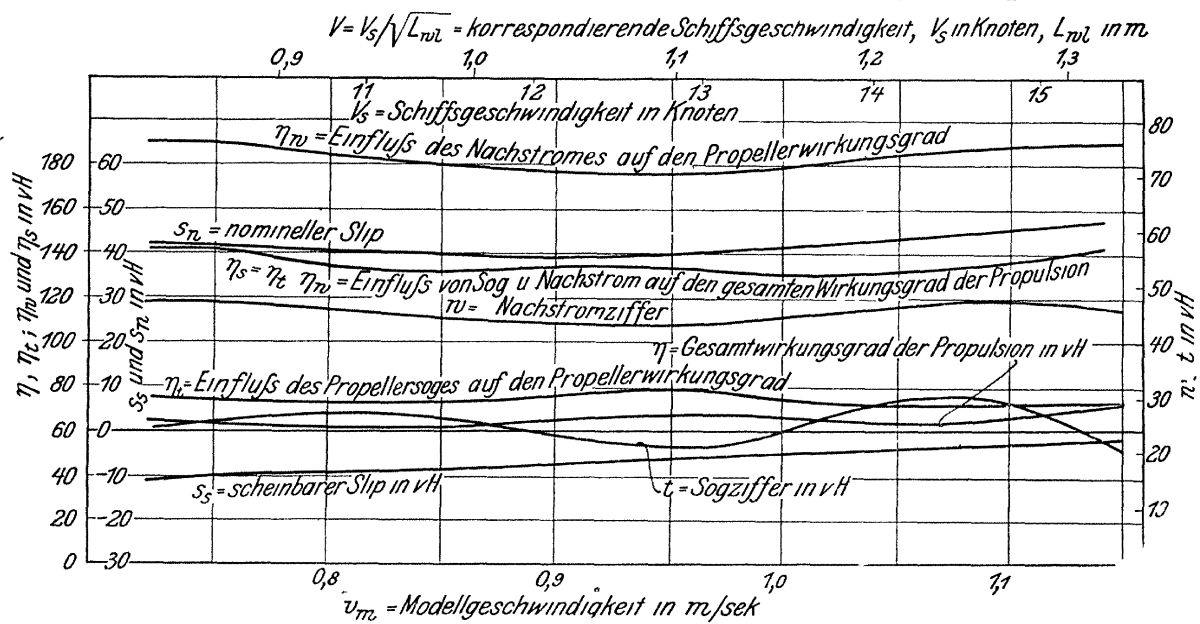 V = Vs/√Lwl = korrespondierende Schiffsgeschwindigkeit, Vs in Knoten, Lwl in m
0,9 1,0 1,1 1,2 1,3
11 12 13 14 15
Vs = Schiffsgeschwindigkeit in Knoten
ηw = Einfluß des Nachstromes auf den Propellerwirkungsgrad
sn = nomineller Slip
ηs = ηt ηw = Einfluß von Sog u Nachstrom auf den gesamten Wirkungsgrad der Propulsion
w = Nachstromziffer
η = Gesamtwirkungsgrad der Propulsion in vH
ηt = Einfluß des Propellersoges auf den Propellerwirkungsgrad
ss = scheinbarer Slip in vH
t = Sogziffer in vH
η, ηt; ηw und ηs in vH
180
160
140
120
100
80
60
40
20
0
ss und sn in vH
60
50
40
30
20
10
0
-10
-20
-30
80
70
60
50
40
30
20
10
w. t in vH
0,8 0,9 1,0 1,1
vm = Modellgeschwindigkeit in m/sek